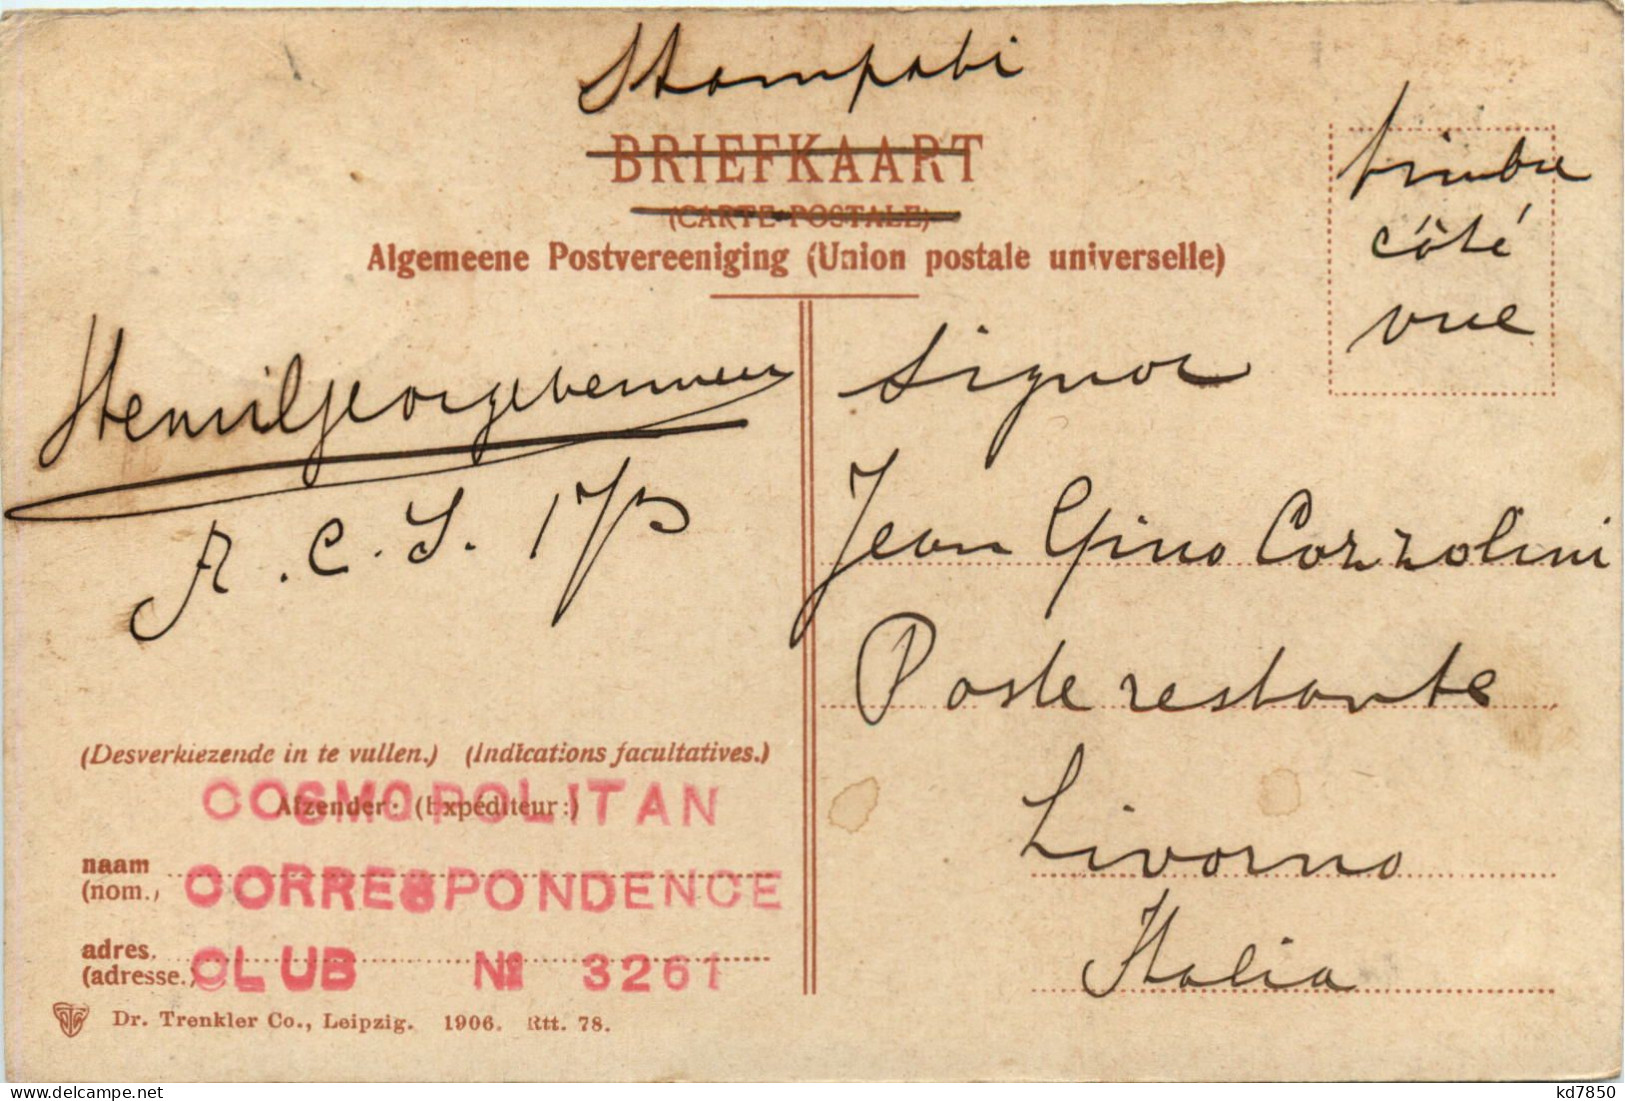 Stampati
BRIEFKAART
(CARTE POSTALE)
Algemeene Postvereeniging (Union postale universelle)
timbre
côté
vue
Signor
Jean Gino Cozzolini
Poste restante
Livorno
Italia
(Desverkiezende in te vullen.) (Indications facultatives.)
Afzender: (Expéditeur:)
COSMOPOLITAN
naam
(nom.)
CORRESPONDENCE
adres.
(adresse.)
CLUB № 3261
Dr. Trenkler Co., Leipzig. 1906. Rtt. 78.
kd7850